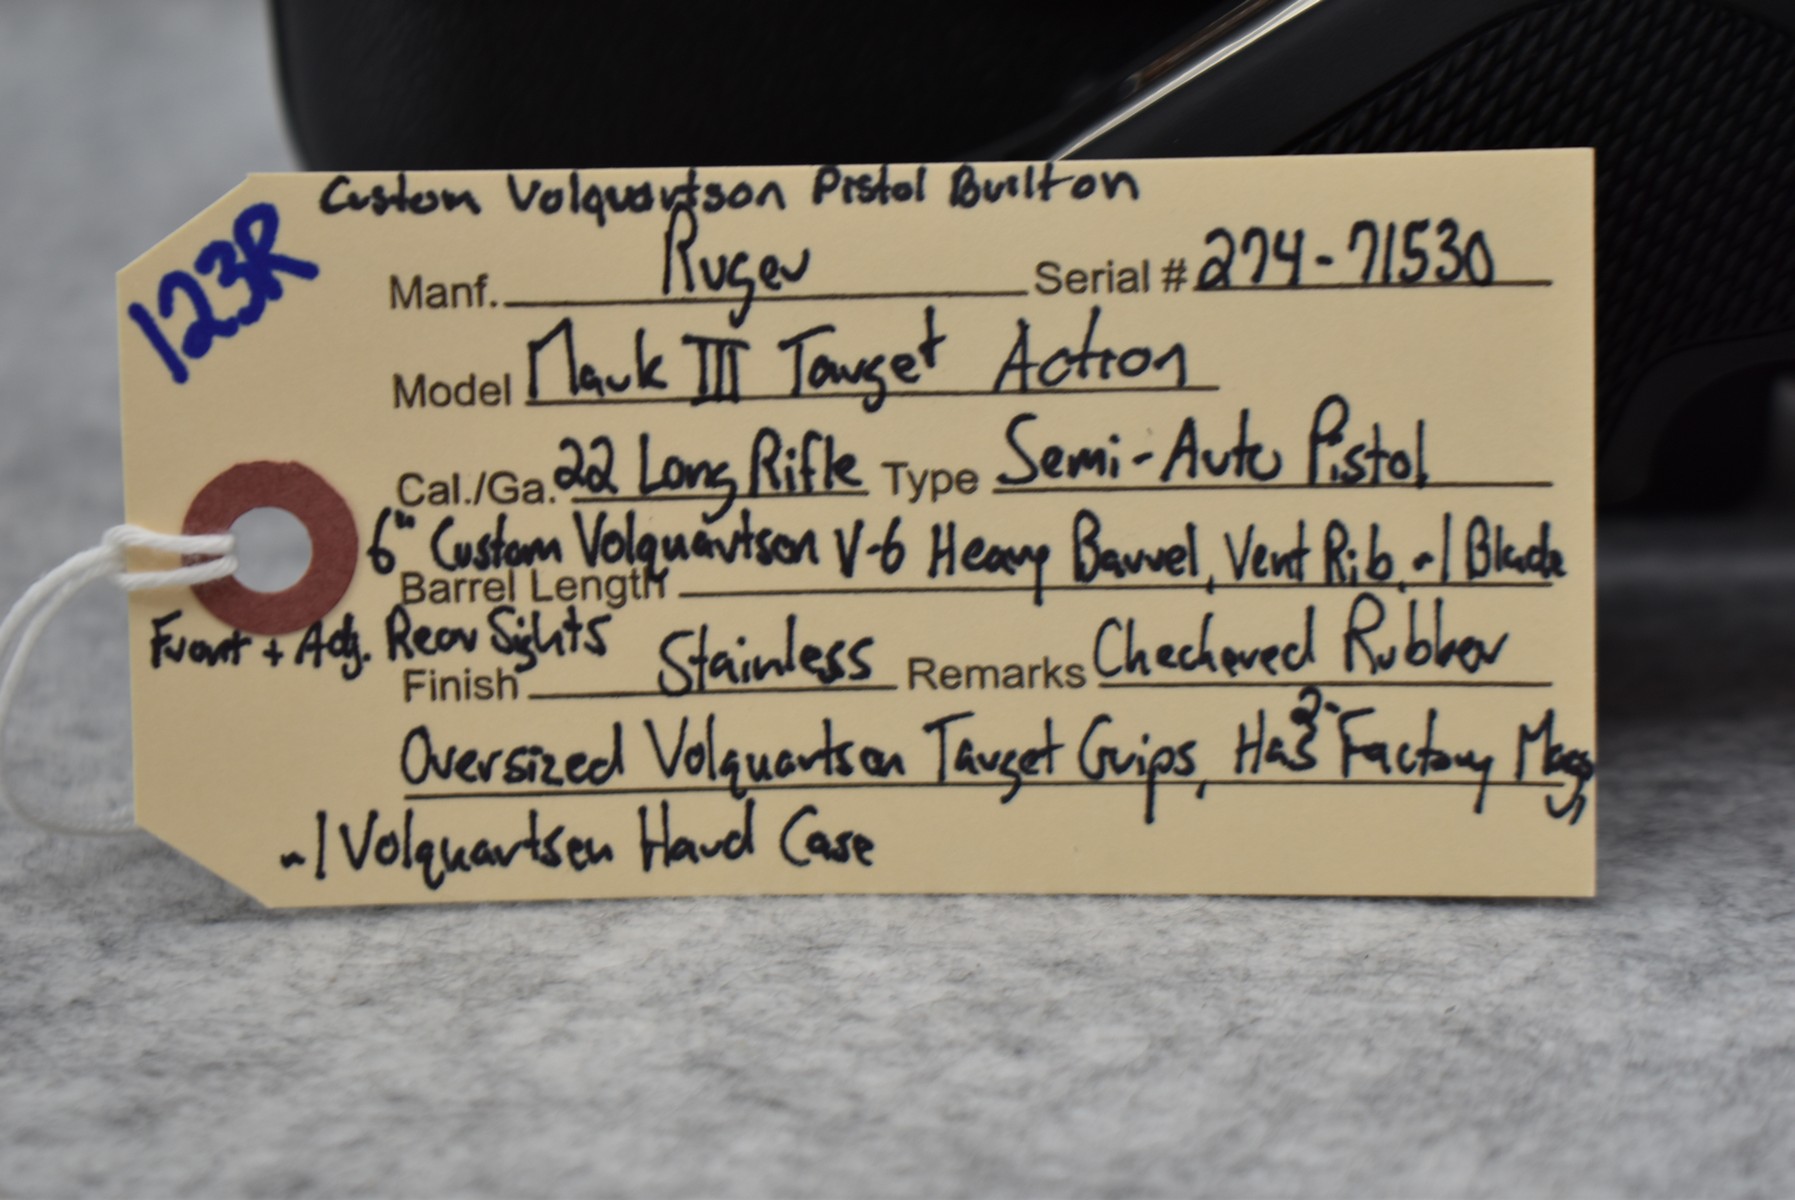 Custom Volquartson Pistol Built on
123R
Manf. Ruger Serial # 274-71530
Model Mark III Target Action
Cal./Ga. 22 Long Rifle Type Semi-Auto Pistol
6" Custom Volquartson V-6 Heavy Barrel, Vent Rib, w/ Blade
Barrel Length
Front + Adj. Rear Sights
Finish Stainless Remarks Checkered Rubber
Oversized Volquartsen Target Grips, Has 2- Factory Mags,
w/ Volquartsen Hard Case